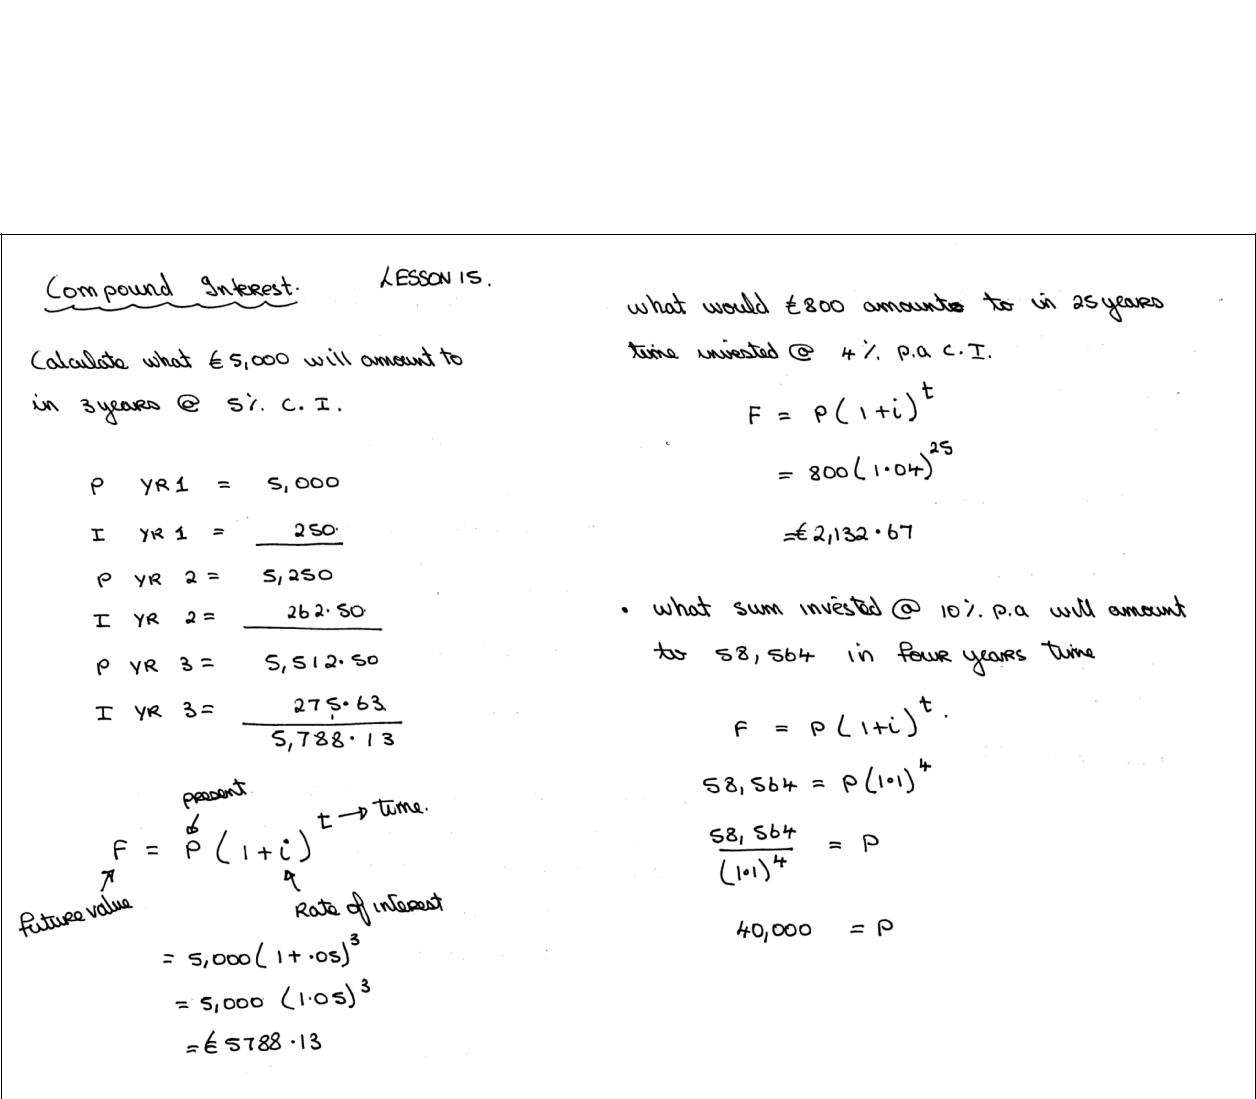 Compound Interest. LESSON 15.
Calculate what €5,000 will amount to
in 3 years @ 5%. C. I.
P YR 1 = 5,000
I YR 1 = 250.
P YR 2 = 5,250
I YR 2 = 262.50
P YR 3 = 5,512.50
I YR 3 = 275.63
5,788.13
present
F = P(1+i)^t → time.
future value
Rate of interest
= 5,000(1+.05)^3
= 5,000 (1.05)^3
= €5788.13
what would €800 amount to in 25 years
time invested @ 4%. p.a C.I.
F = P(1+i)^t
= 800(1.04)^25
= €2,132.67
• what sum invested @ 10%. p.a will amount
to 58,564 in four years time
F = P(1+i)^t.
58,564 = P(1.1)^4
58,564
(1.1)^4 = P
40,000 = P